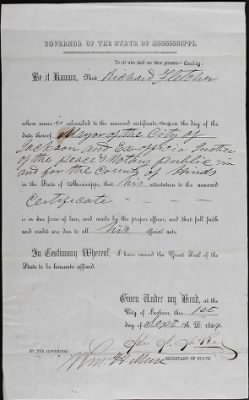 GOVERNOR OF THE STATE OF MISSISSIPPI.
To all who shall see these presents—Greeting:
Be it Known, That Richard Fletcher
whose name is subscribed to the annexed certificate, was on the day of the
date thereof, Mayor of the City of
Jackson and Ex officio Justice
of the peace & Notary public in
and for the County of Hinds
in the State of Mississippi, that his attestation to the annexed
Certificate - - - -
is in due form of law, and made by the proper officer, and that full faith
and credit are due to all his official acts.
In Testimony Whereof, I have caused the Great Seal of the
State to be hereunto affixed.
Given Under my Hand, at the
City of Jackson, the 1st
day of Sept A. D. 18
BY THE GOVERNOR
SECRETARY OF STATE.